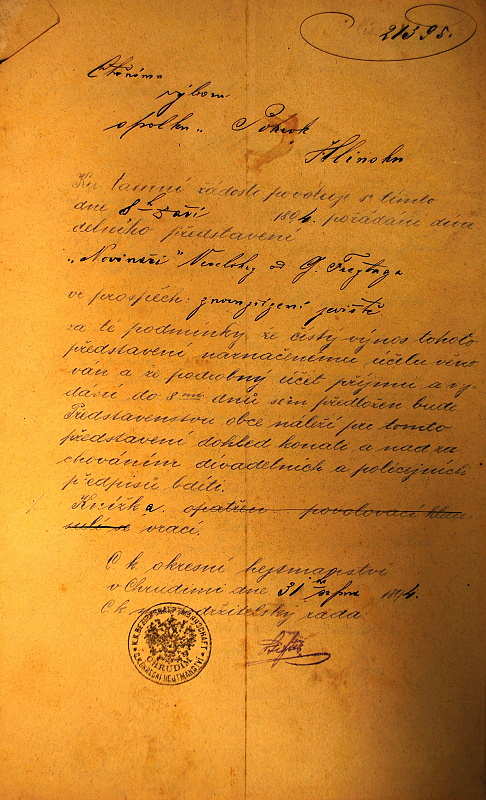 21395.
výboru
spolku "Pokrok
Hlinsku
Ku tamní žádosti povoluje se tímto
dne 8ho září 1894. pořádání diva
delního představení
"Novináři" Veselohry od G. Freytaga
ve prospěch: zvelebení jeviště
za té podmínky že čistý výnos tohoto
představení naznačenému účelu věno
ván a že podrobný účet příjmů a vy
dání do 8mi dnů sem předložen bude
Představenstvu obce náleží při tomto
představení dohled konati a nad za
chováním divadelních a policejních
předpisů bdíti.
Knížka opatřen povolovací klau
sulí se vrací.
C k okresní hejtmanství
v Chrudimi dne 31ho srpna 1894.
C k místodržitelský rada
K.K. BEZIRKSHAUPTMANNSCHAFT
CHRUDIM
C.K. OKRESNÍ HEJTMANSTVÍ